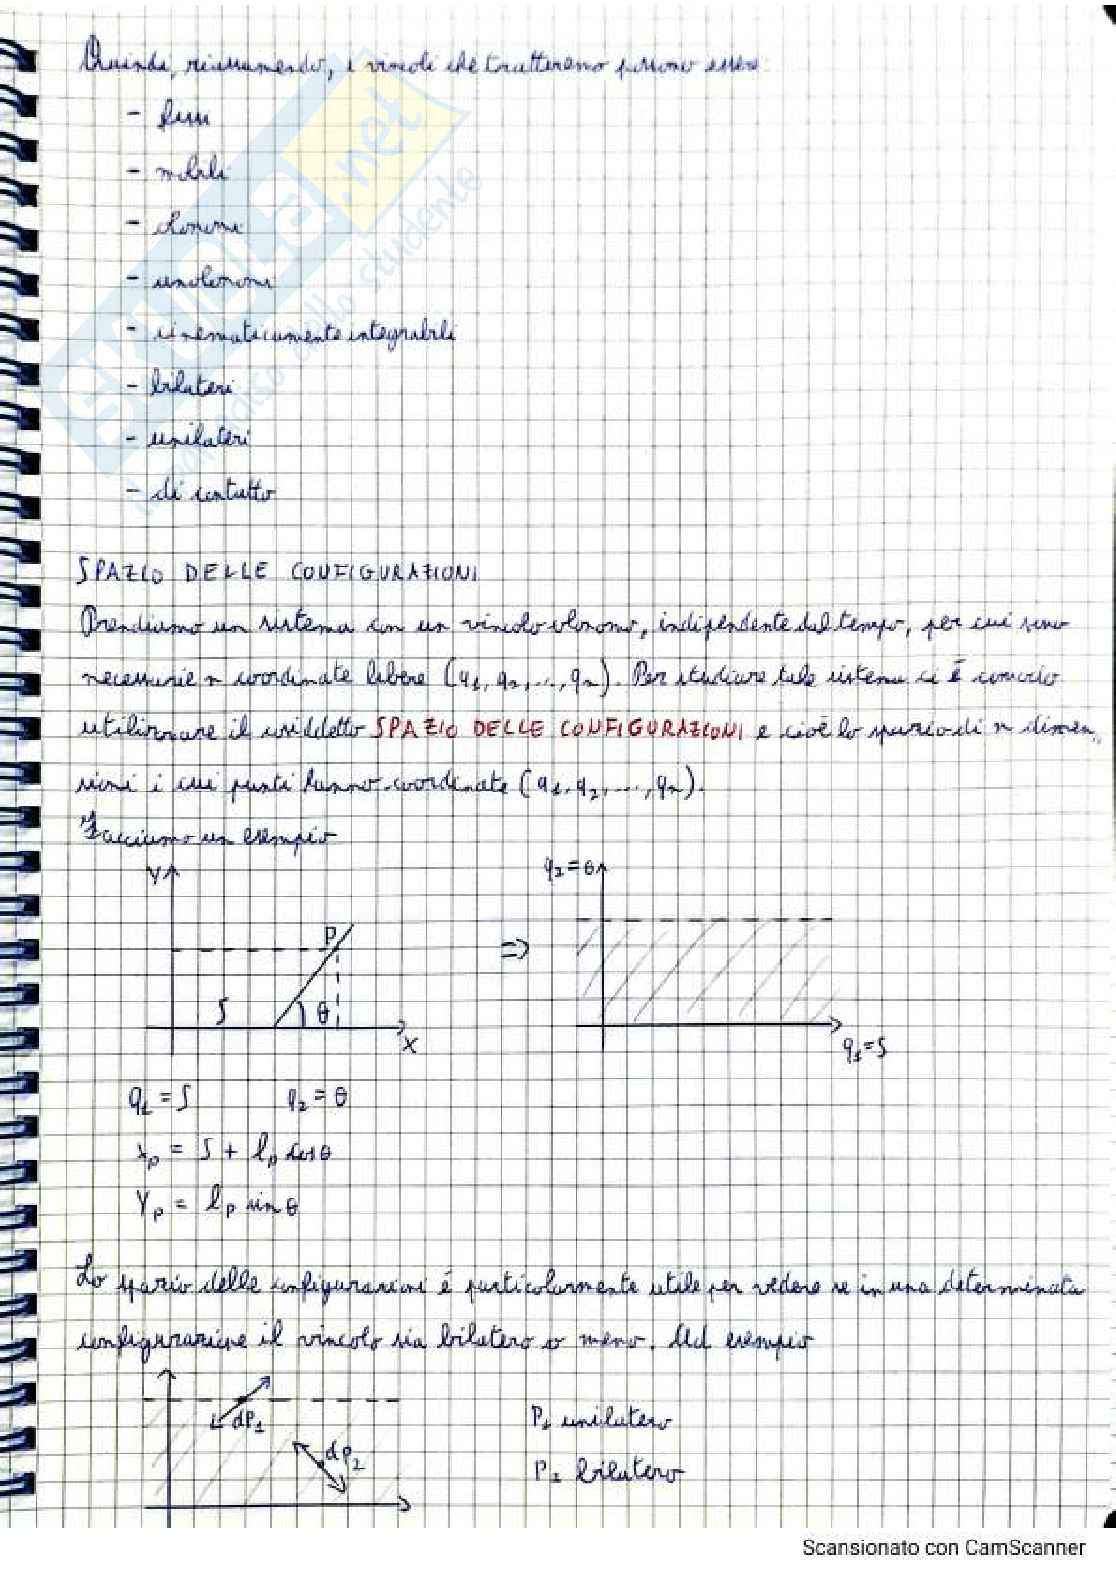 Quindi, riassumendo, i vincoli che tratteremo possono essere:
- fissi
- mobili
- olonomi
- anolonomi
- cinematicamente integrabili
- bilateri
- unilateri
- di contatto
SKUOLA.net
il paradiso dello studente
SPAZIO DELLE CONFIGURAZIONI
Prendiamo un sistema con un vincolo olonomo, indipendente dal tempo, per cui sono
necessarie n coordinate libere (q1, q2, ..., qn). Per studiare tale sistema ci è comodo
utilizzare il cosiddetto SPAZIO DELLE CONFIGURAZIONI e cioè lo spazio di n dimen
sioni i cui punti hanno coordinate (q1, q2, ..., qn).
Facciamo un esempio
Y
P
S
θ
X
⇒
q2 = θ
q1 = S
q1 = S q2 = θ
xp = S + lp cos θ
Yp = lp sin θ
Lo spazio delle configurazioni è particolarmente utile per vedere se in una determinata
configurazione il vincolo sia bilatero o meno. Ad esempio
dP1
dP2
P1 unilatero
P2 bilatero
Scansionato con CamScanner